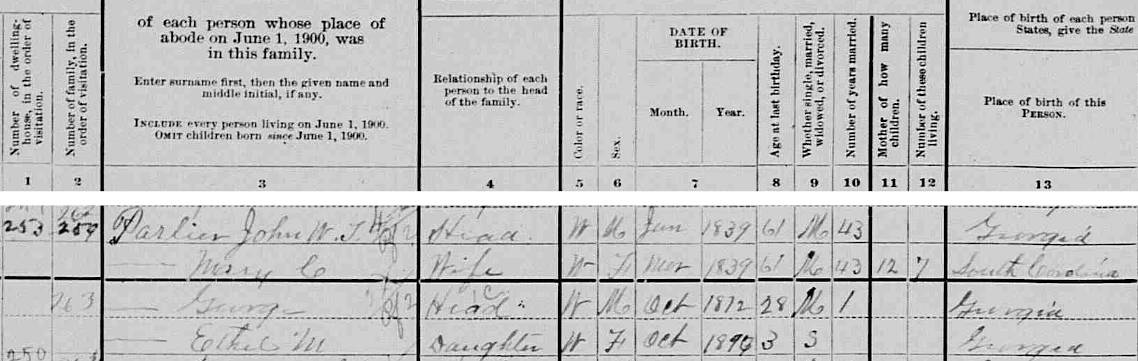 Number of dwelling-house, in the order of visitation.
Number of family, in the order of visitation.
of each person whose place of
abode on June 1, 1900, was
in this family.
Enter surname first, then the given name and
middle initial, if any.
INCLUDE every person living on June 1, 1900.
OMIT children born since June 1, 1900.
Relationship of each
person to the head
of the family.
Color or race.
Sex.
DATE OF
BIRTH.
Month. Year.
Age at last birthday.
Whether single, married,
widowed, or divorced.
Number of years married.
Mother of how many
children.
Number of these children
living.
Place of birth of each person
States, give the State
Place of birth of this
PERSON.
1 2 3 4 5 6 7 8 9 10 11 12 13
253 259 Parlier John W. T. Head W M Jun 1839 61 M 43 Georgia
— Mary C Wife W F Mar 1839 61 M 43 12 7 South Carolina
263 — George Head W M Oct 1872 28 M 1 Georgia
— Ethel M Daughter W F Oct 1896 3 S Georgia
250